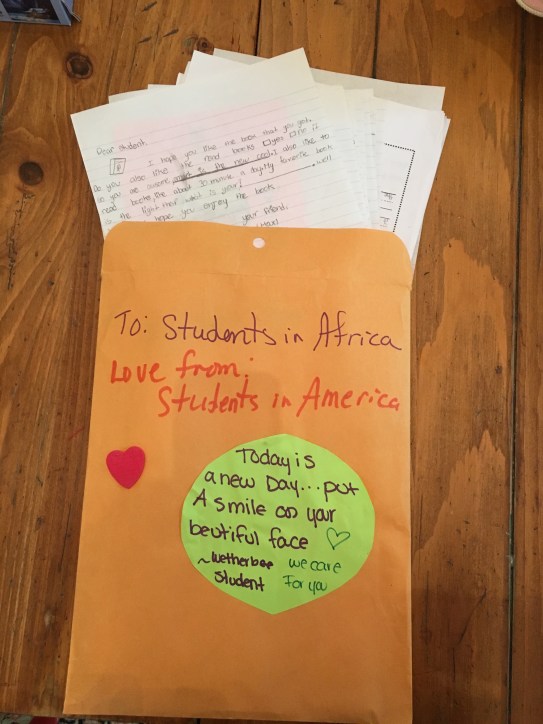 Dear Student,
I hope you like the book that you got.
Do you also like the read books □yes □no if
so you are awesome is the new cool. I also like to
read books the about 30 minute a day. My favorite book
is the light thief what is your? well
I hope you enjoy the book
your friend,
To: Students in Africa
Love from:
Students in America
Today is
a new Day... put
A smile on your
beutiful face
~Wetherbee
Student
we care
For you